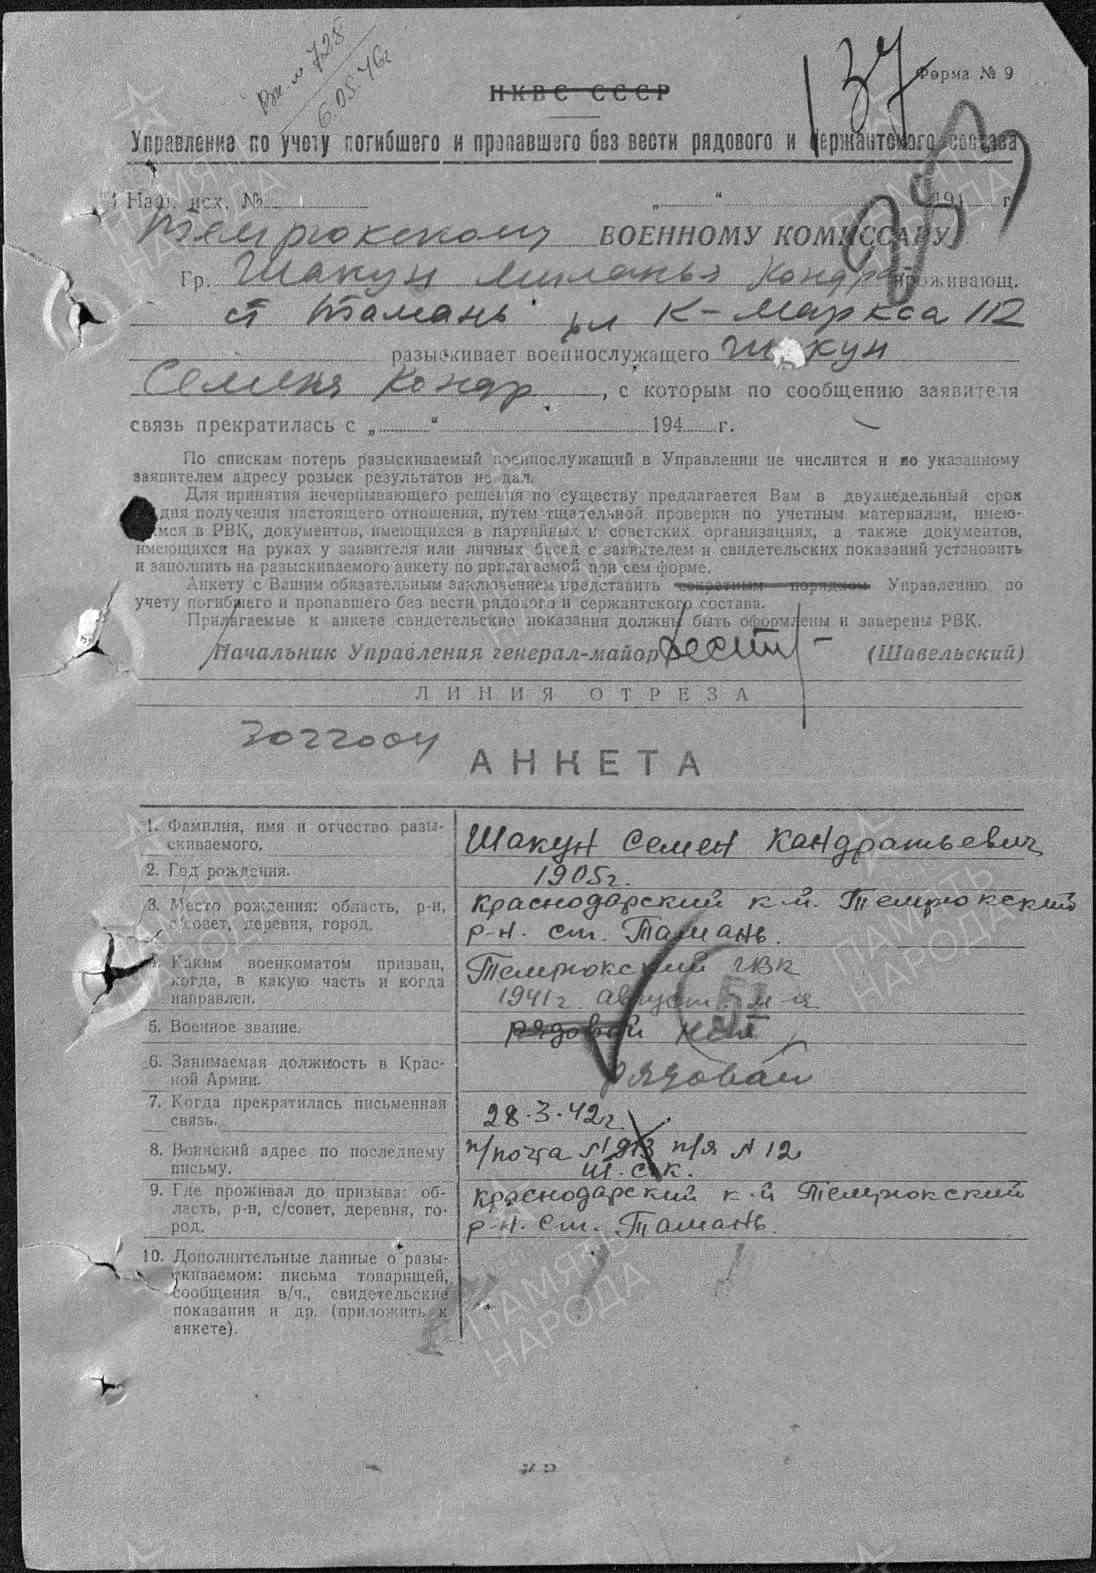 Вх № 728
6.05.46г
137
Форма № 9
НКВС СССР
Управление по учету погибшего и пропавшего без вести рядового и сержантского состава
На № исх. № „ “ 194 г.
Темрюкскому ВОЕННОМУ КОМИССАРУ
Гр. Шакун Миланья Кондр проживающ.
ст Тамань ул К-Маркса 112
разыскивает военнослужащего Шакун
Семена Кондр , с которым по сообщению заявителя
связь прекратилась с „ “ 194 г.
По спискам потерь разыскиваемый военнослужащий в Управлении не числится и по указанному
заявителем адресу розыск результатов не дал.
Для принятия исчерпывающего решения по существу предлагается Вам в двухнедельный срок
со дня получения настоящего отношения, путем тщательной проверки по учетным материалам, имею-
щимся в РВК, документов, имеющихся в партийных и советских организациях, а также документов,
имеющихся на руках у заявителя или личных бесед с заявителем и свидетельских показаний установить
и заполнить на разыскиваемого анкету по прилагаемой при сем форме.
Анкету с Вашим обязательным заключением представить секретным порядком Управлению по
учету погибшего и пропавшего без вести рядового и сержантского состава.
Прилагаемые к анкете свидетельские показания должны быть оформлены и заверены РВК.
Начальник Управления генерал-майор (Шавельский)
ЛИНИЯ ОТРЕЗА
30772004
АНКЕТА
1. Фамилия, имя и отчество разы-
скиваемого.
Шакун Семен Кандратьевич
2. Год рождения.
1905г.
3. Место рождения: область, р-н,
с/совет, деревня, город.
Краснодарский к-й. Темрюкский
р-н. ст. Тамань.
4. Каким военкоматом призван,
когда, в какую часть и когда
направлен.
Темрюкский ГВК
1941г. август. м-я
5. Военное звание.
рядовой
6. Занимаемая должность в Крас-
ной Армии.
рядовай
7. Когда прекратилась письменная
связь.
28.3.42г.
8. Воинский адрес по последнему
письму.
п/почта №913 п/я №12
9. Где проживал до призыва: об-
ласть, р-н, с/совет, деревня, го-
род.
Краснодарский к-й Темрюкский
р-н. ст. Тамань.
10. Дополнительные данные о разы-
скиваемом: письма товарищей,
сообщения в/ч., свидетельские
показания и др. (приложить к
анкете).
ПАМЯТЬ
НАРОДА